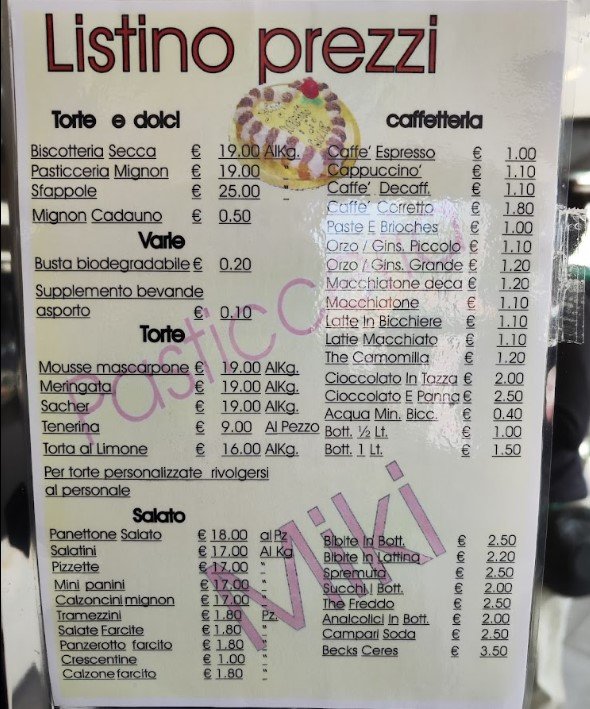 Listino prezzi
Torte e dolci
Biscotteria Secca € 19.00 AlKg.
Pasticceria Mignon € 19.00 "
Sfappole € 25.00 "
Mignon Cadauno € 0.50
Varie
Busta biodegradabile € 0.20
Supplemento bevande
asporto € 0.10
Torte
Mousse mascarpone € 19.00 AlKg.
Meringata € 19.00 AlKg.
Sacher € 19.00 AlKg.
Tenerina € 9.00 Al Pezzo
Torta al Limone € 16.00 AlKg.
Per torte personalizzate rivolgersi
al personale
Salato
Panettone Salato € 18.00 al Pz
Salatini € 17.00 Al Kg
Pizzette € 17.00
Mini panini € 17.00
Calzoncini mignon € 17.00
Tramezzini € 1.80 Pz.
Salate Farcite € 1.80
Panzerotto farcito € 1.80
Crescentine € 1.00
Calzone farcito € 1.80
caffetteria
Caffe' Espresso € 1.00
Cappuccino' € 1.10
Caffe' Decaff. € 1.10
Caffe' Corretto € 1.80
Paste E Brioches € 1.00
Orzo / Gins. Piccolo € 1.10
Orzo / Gins. Grande € 1.20
Macchiatone deca € 1.20
Macchiatone € 1.10
Latte In Bicchiere € 1.10
Latte Macchiato € 1.10
The Camomilla € 1.20
Cioccolato In Tazza € 2.00
Cioccolato E Panna € 2.50
Acqua Min. Bicc. € 0.40
Bott. ½ Lt. € 1.00
Bott. 1 Lt. € 1.50
Bibite In Bott. € 2.50
Bibite In Lattina € 2.20
Spremuta € 2.50
Succhi I Bott. € 2.00
The Freddo € 2.50
Analcolici In Bott. € 2.00
Campari Soda € 2.50
Becks Ceres € 3.50
Pasticceria
Miki